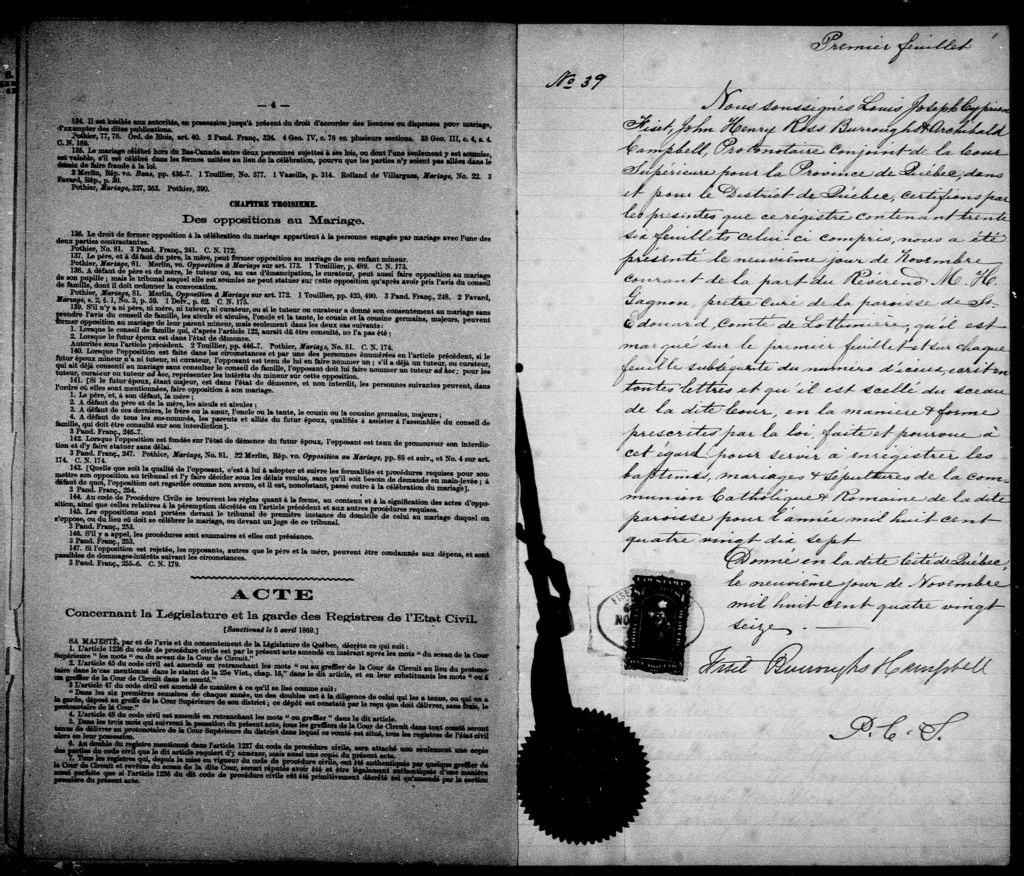 — 4 —
134. Il est loisible aux autorités, en possession jusqu'à présent du droit d'accorder des licences ou dispenses pour mariage,
d'exempter des dites publications.
Pothier, 77, 78. Ord. de Blois, art. 40. 2 Pand. Franç., 324. 4 Geo. IV, c. 76 en plusieurs sections. 35 Geo. III, c. 4, s. 4.
C. N. 169.
135. Le mariage célébré hors du Bas-Canada entre deux personnes sujettes à ses lois, ou dont l'une seulement y est soumise,
est valable, s'il est célébré dans les formes usitées au lieu de la célébration, pourvu que les parties n'y soient pas allées dans le
dessein de faire fraude à la loi.
2 Merlin, Rép. vo. Bans, pp. 436-7. 1 Touillier, No. 577. 1 Vazeille, p. 314. Rolland de Villargues, Mariage, No. 22. 3
Favard, Rép., p. 30.
Pothier, Mariage, 327, 363. Pothier, 390.
CHAPITRE TROISIEME.
Des oppositions au Mariage.
136. Le droit de former opposition à la célébration du mariage appartient à la personne engagée par mariage avec l'une des
deux parties contractantes.
Pothier, No. 81. 3 Pand. Franç., 241. C. N. 172.
137. Le père, et à défaut du père, la mère, peut former opposition au mariage de son enfant mineur.
Pothier, Mariage, 81. Merlin, vo. Opposition à Mariage sur art. 173. 1 Touillier, p. 489. C. N. 173.
138. A défaut de père et de mère, le tuteur ou, au cas d'émancipation, le curateur, peut aussi faire opposition au mariage
de son pupille; mais le tribunal auquel est soumise ne peut statuer sur cette opposition qu'après avoir pris l'avis du conseil
de famille, dont il doit ordonner la convocation.
Pothier, Mariage, 81. Merlin, Opposition à Mariage sur art. 172. 1 Touillier, pp. 425, 490. 3 Pand. Franç., 248. 2 Favard,
Mariage, s. 2, § 1, No. 3, p. 59. 1 Delv., p. 62. C. N. 175.
139. S'il n'y a ni père, ni mère, ni tuteur, ni curateur, ou si le tuteur ou curateur a donné son consentement au mariage sans
prendre l'avis du conseil de famille, les aïeuls et aïeules, l'oncle et la tante, le cousin et la cousine germains, majeurs, peuvent
former opposition au mariage de leur parent mineur, mais seulement dans les deux cas suivants:
1. Lorsque le conseil de famille qui, d'après l'article 122, aurait dû être consulté, ne l'a pas été;
2. Lorsque le futur époux est dans l'état de démence.
Autorités sous l'article précédent. 2 Touillier, pp. 446-7. Pothier, Mariage, No. 81. C. N. 174.
140. Lorsque l'opposition est faite dans les circonstances et par une des personnes énumérées en l'article précédent, si le
futur époux mineur n'a ni tuteur, ni curateur, l'opposant est tenu de lui en faire nommer un; s'il a déjà un tuteur, ou curateur,
qui ait déjà consenti au mariage sans consulter le conseil de famille, l'opposant doit lui faire nommer un tuteur ad hoc; pour les
tuteur, curateur ou tuteur ad hoc, représenter les intérêts du mineur sur cette opposition.
141. [Si le futur époux, étant majeur, est dans l'état de démence, et non interdit, les personnes suivantes peuvent, dans
l'ordre où elles sont mentionnées, faire opposition à son mariage.
1. Le père, et, à son défaut, la mère;
2. A défaut du père et de la mère, les aïeuls et aïeules;
3. A défaut de ces derniers, le frère ou la sœur, l'oncle ou la tante, le cousin ou la cousine germains, majeurs;
4. A défaut de tous les sus-nommés, les parents et alliés du futur époux, qualifiés à assister à l'assemblée du conseil de
famille, qui doit être consulté sur son interdiction].
3 Pand. Franç., 246-7.
142. Lorsque l'opposition est fondée sur l'état de démence du futur époux, l'opposant est tenu de promouvoir son interdic-
tion et d'y faire statuer sans délai.
3 Pand. Franç., 247. Pothier, Mariage, No. 81. 22 Merlin, Rép. vo. Opposition au Mariage, pp. 88 et suiv., et No. 4 sur art.
174. C. N. 174.
143. [Quelle que soit la qualité de l'opposant, c'est à lui à adopter et suivre les formalités et procédures requises pour sou-
mettre son opposition au tribunal et l'y faire décider sous les délais voulus, sans qu'il soit besoin de demande en main-levée; à
défaut de quoi, l'opposition est regardée comme non avenue, et il est, nonobstant, passé outre à la célébration du mariage].
3 Pand. Franç., 254.
144. Au code de Procédure Civile se trouvent les règles quant à la forme, au contenu et à la signification des actes d'oppo-
sition, ainsi que celles relatives à la péremption décrétée en l'article précédent et aux autres procédures requises.
145. Les oppositions sont portées devant le tribunal de première instance du domicile de celui au mariage duquel on
s'oppose, ou du lieu où doit se célébrer le mariage, ou devant un juge de ce tribunal.
3 Pand. Franç., 253.
146. S'il y a appel, les procédures sont sommaires et elles ont préséance.
3 Pand. Franç., 253.
147. Si l'opposition est rejetée, les opposants, autres que le père et la mère, peuvent être condamnés aux dépens, et sont
passibles de dommages-intérêts suivant les circonstances.
3 Pand. Franç., 255-6. C. N. 179.
ACTE
Concernant la Législature et la garde des Registres de l'Etat Civil.
[Sanctionné le 5 avril 1869.]
SA MAJESTÉ, par et de l'avis et du consentement de la Législature de Québec, décrète ce qui suit:
1. L'article 1236 du code de procédure civile est par le présent acte amendé en insérant après les mots "du sceau de la Cour
Supérieure" les mots "ou du sceau de la Cour de Circuit."
2. L'article 45 du code civil est amendé en retranchant les mots "ou au greffier de la Cour de Circuit au lieu du protono-
taire dans le cas mentionné dans le statut de la 25e Vict., chap. 16," dans le dit article, et en leur substituant les mots "ou à
un greffier de la Cour de Circuit dans le comté."
3. L'article 47 du code civil est amendé de manière à ce qu'il se lise comme suit:
"Dans les six premières semaines de chaque année, un des doubles est à la diligence de celui qui les a tenus, ou qui en a
la garde, déposé au greffe de la Cour Supérieure de son district; ce dépôt est constaté par le reçu que doit délivrer, sans frais, le
protonotaire de la Cour."
4. L'article 48 du code civil est amendé en retranchant les mots "ou greffier" dans le dit article.
5. Dans les trois mois qui suivront la passation du présent acte, tous les greffiers de la Cour de Circuit dans tout comté seront
tenus de délivrer au protonotaire de la Cour Supérieure du district dans lequel ce comté est situé, tous les registres de l'état civil
alors en leur possession.
6. Au double du registre mentionné dans l'article 1237 du code de procédure civile, sera attaché non seulement une copie
des parties du code civil que le dit article requiert d'y annexer, mais aussi une copie du présent acte.
7. Tous les registres qui, depuis la mise en vigueur du code de procédure civile, ont été authentiqués par quelque greffier de
la Cour de Circuit et revêtus du sceau de la dite Cour, seront réputés avoir été et être légalement authentiqués d'une manière
aussi parfaite que si l'article 1236 du dit code de procédure civile eût été primitivement décrété tel qu'amendé par la section
première du présent acte.
Premier feuillet
No 39
Nous soussignés Louis Joseph Cyprien
Fiset, John Henry Ross Burroughs & Archibald
Campbell, Protonotaire conjoint de la Cour
Supérieure pour la Province de Québec, dans
et pour le District de Québec, certifions par
les présentes que ce registre contenant trente
six feuillets celui-ci compris, nous a été
présenté le neuvième jour de Novembre
courant de la part du Révérend M. H.
Gagnon, prêtre curé de la paroisse de St
Edouard, comté de Lotbinière, qu'il est
marqué sur le premier feuillet et sur chaque
feuille subséquente du numéro d'iceux, écrit en
toutes lettres et qu'il est scellé du sceau
de la dite Cour, en la manière & forme
prescrites par la loi, faite et pourvue à
cet égard pour servir à enregistrer les
baptêmes, mariages & sépultures de la com-
munion Catholique & Romaine de la dite
paroisse pour l'année mil huit cent
quatre vingt dix sept
Donné en la dite Cité de Québec,
le neuvième jour de Novembre
mil huit cent quatre vingt
seize.
Fiset Burroughs & Campbell
P. C. S.